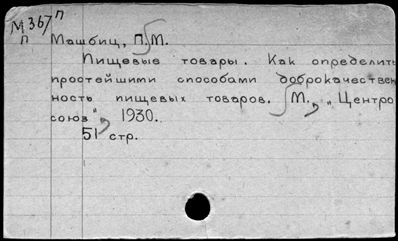 М 367 п
п Машбиц, П. М.
Пищевые товары. Как определить
простейшими способами доброкачествен
ность пищевых товаров. М., „Центро
союз", 1930.
51 стр.